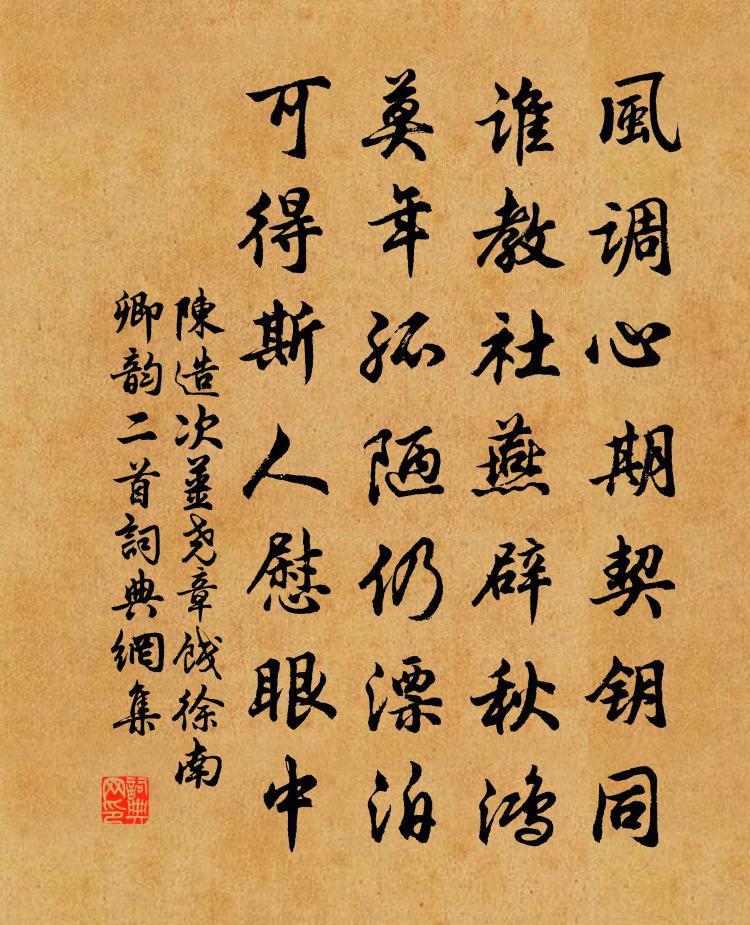 風调心期契钥同
谁教社燕辟秋鸿
莫年孤陋仍漂泊
可得斯人慰眼中
陳造次姜尧章饯徐南
卿韵二首詞典網集
詞典
网印